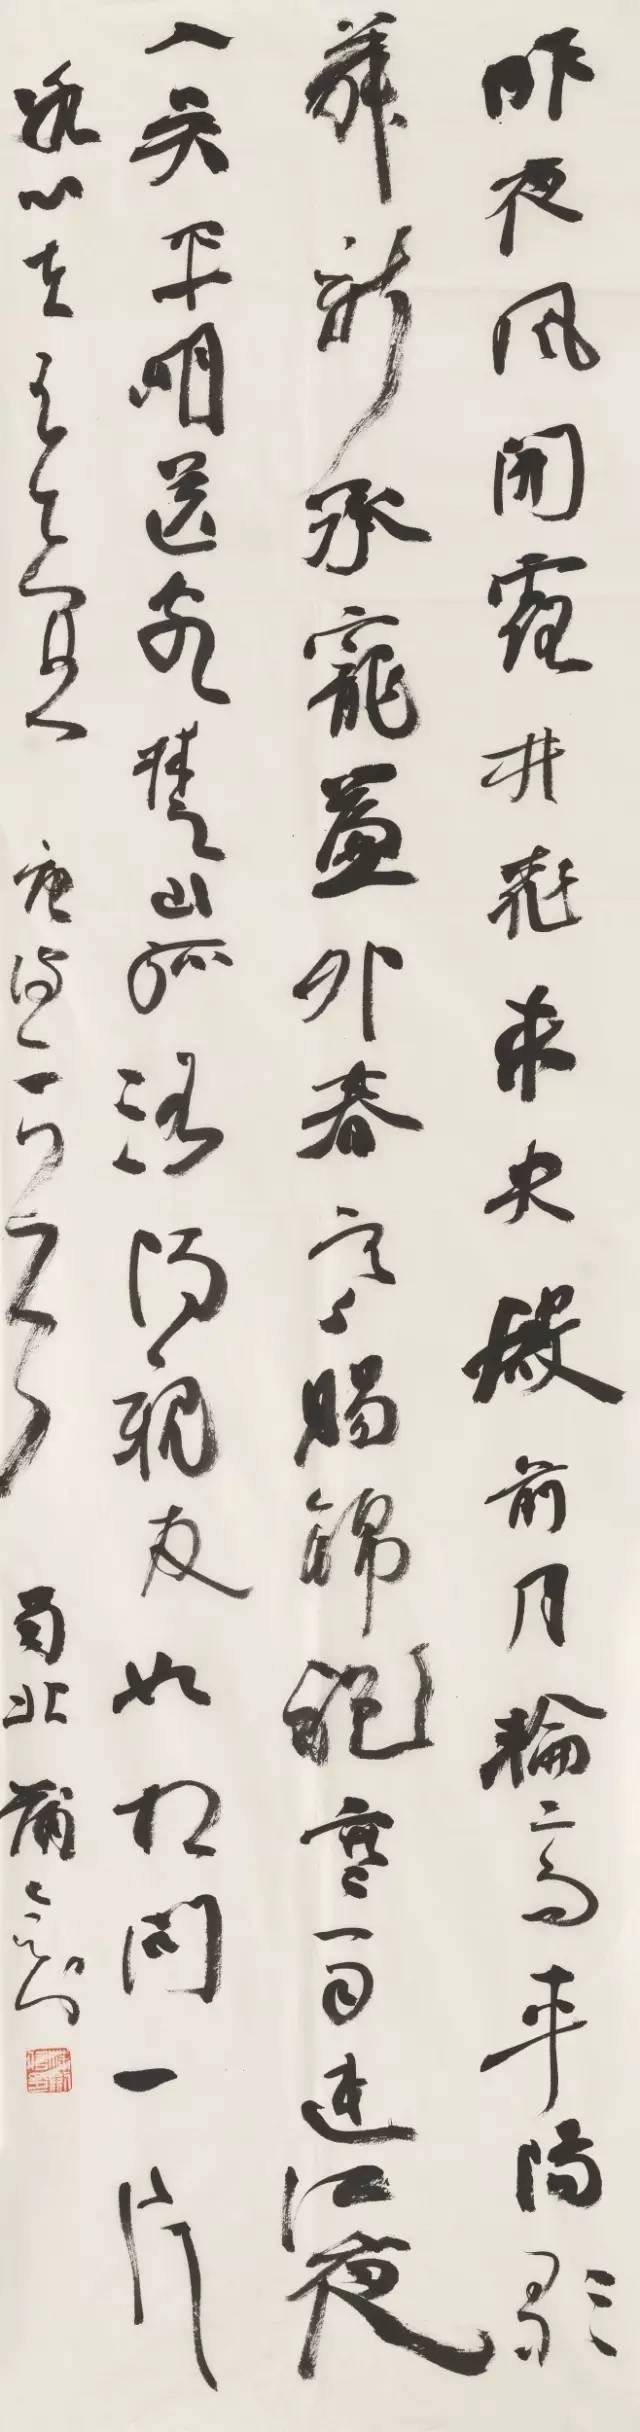 昨夜風開露井桃未央殿前月輪高平陽歌
舞新承寵簾外春寒賜錦袍寒雨連江夜
入吳平明送客楚山孤洛陽親友如相問一片
冰心在玉壺 唐詩 蜀北蒲